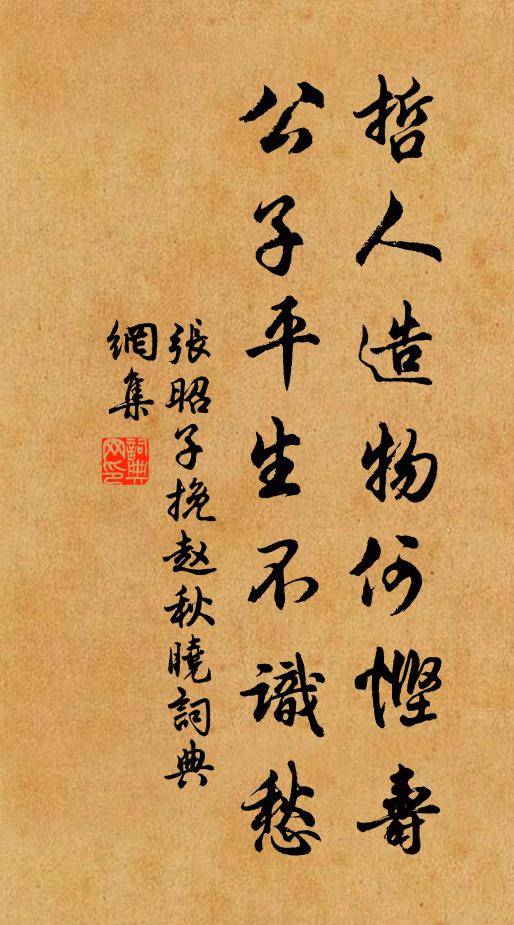 哲人造物何慳壽
公子平生不識愁
張昭子挽赵秋曉詞典
網集
詞典
网印